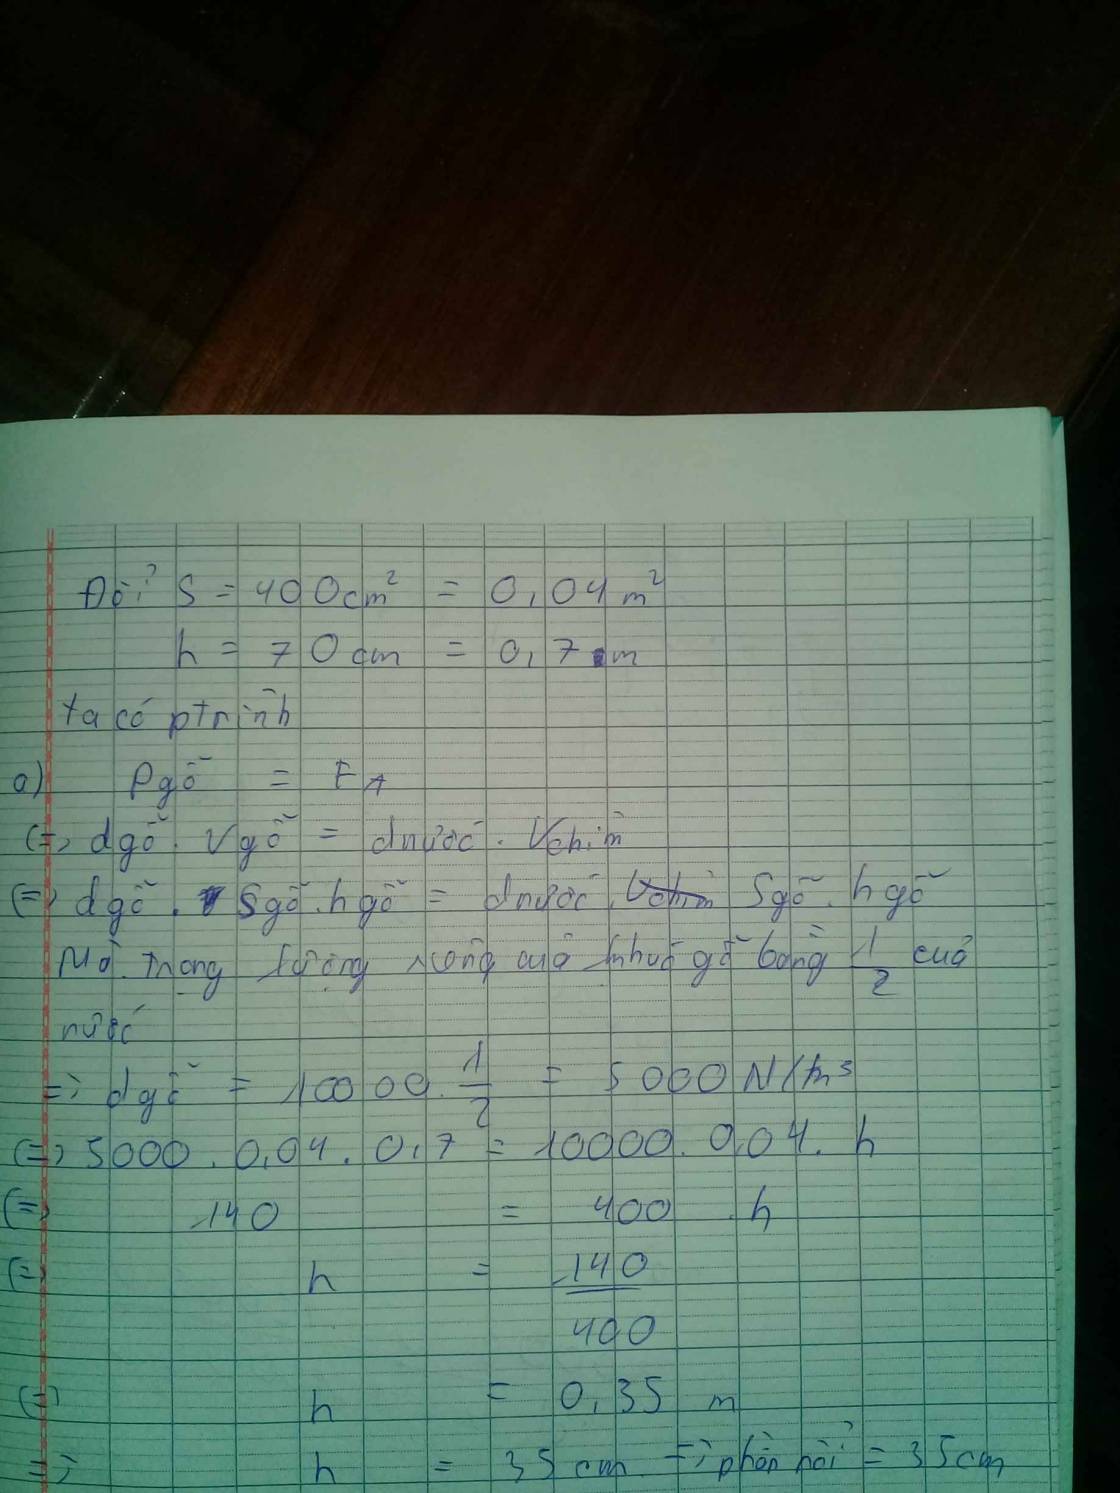 Đổi S = 400cm² = 0,04m²
h = 70cm = 0,7m
ta có ptrình
a) Pgỗ = FA
(=) dgỗ. Vgỗ = dnước. Vchìm
(=) dgỗ. Sgỗ.hgỗ = dnước. Sgỗ. hgỗ
Mà trọng lượng riêng của khúc gỗ bằng 1/2 của
nước
=> dgỗ = 10000. 1/2 = 5000N/m³
(=) 5000.0,04.0,7 = 10000.0,04.h
(=) 140 = 400.h
(=) h = 140/400
(=) h = 0,35 m
=> h = 35cm => phần nổi = 35cm